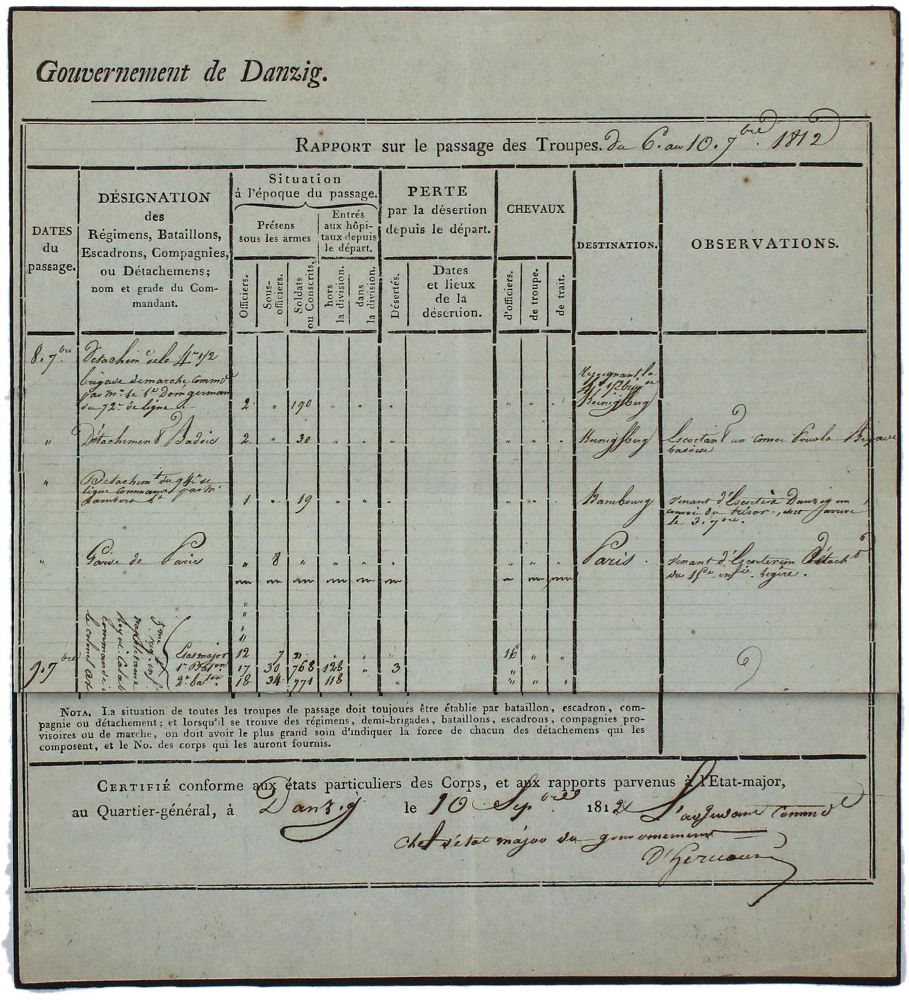 Gouvernement de Danzig.
RAPPORT sur le passage des Troupes. du 6. au 10. 7bre 1812
DATES
du
passage.
DÉSIGNATION
des
Régimens, Bataillons,
Escadrons, Compagnies,
ou Détachemens;
nom et grade du Com-
mandant.
Situation
à l'époque du passage.
Présens
sous les armes
Entrés
aux hôpi-
taux depuis
le départ.
Officiers.
Sous-
officiers.
Soldats
ou Conscrits.
hors
la division.
dans
la division.
PERTE
par la désertion
depuis le départ.
Désertés.
Dates
et lieux
de la
désertion.
CHEVAUX
d'officiers.
de troupe.
de trait.
DESTINATION.
OBSERVATIONS.
8. 7bre Détachemt de la 4me 1/2
brigade de marche commé
par Mr le
du 72e de ligne 2 " 190 " " " " " "
" Détachement Badois 2 " 30 " " " " " " Escortant un convoi
" Détachemt du 94me de
ligne commandé par Mr
Lambert 1 " 19 " " " " " " Bambourg venant d'Escorter à Danzig un
convoi du trésor
le 3. 7bre.
" Garde de Paris " 8 " " " " " " " Paris. venant d'Escorter un Détacht
du 15e infie légère.
9. 7bre
Etat major 12 7 16 " "
1er Baton 17 30 768 128 " 3 " " "
2e baton 18 34 771 118 " " " "
NOTA. La situation de toutes les troupes de passage doit toujours être établie par bataillon, escadron, com-
pagnie ou détachement; et lorsqu'il se trouve des régimens, demi-brigades, bataillons, escadrons, compagnies pro-
visoires ou de marche, on doit avoir le plus grand soin d'indiquer la force de chacun des détachemens qui les
composent, et le No. des corps qui les auront fournis.
CERTIFIÉ conforme aux états particuliers des Corps, et aux rapports parvenus à l'Etat-major,
au Quartier-général, à Danzig le 10 Sepbre 1812 L'adjudant Commdt
Chef d'état major du gouvernement